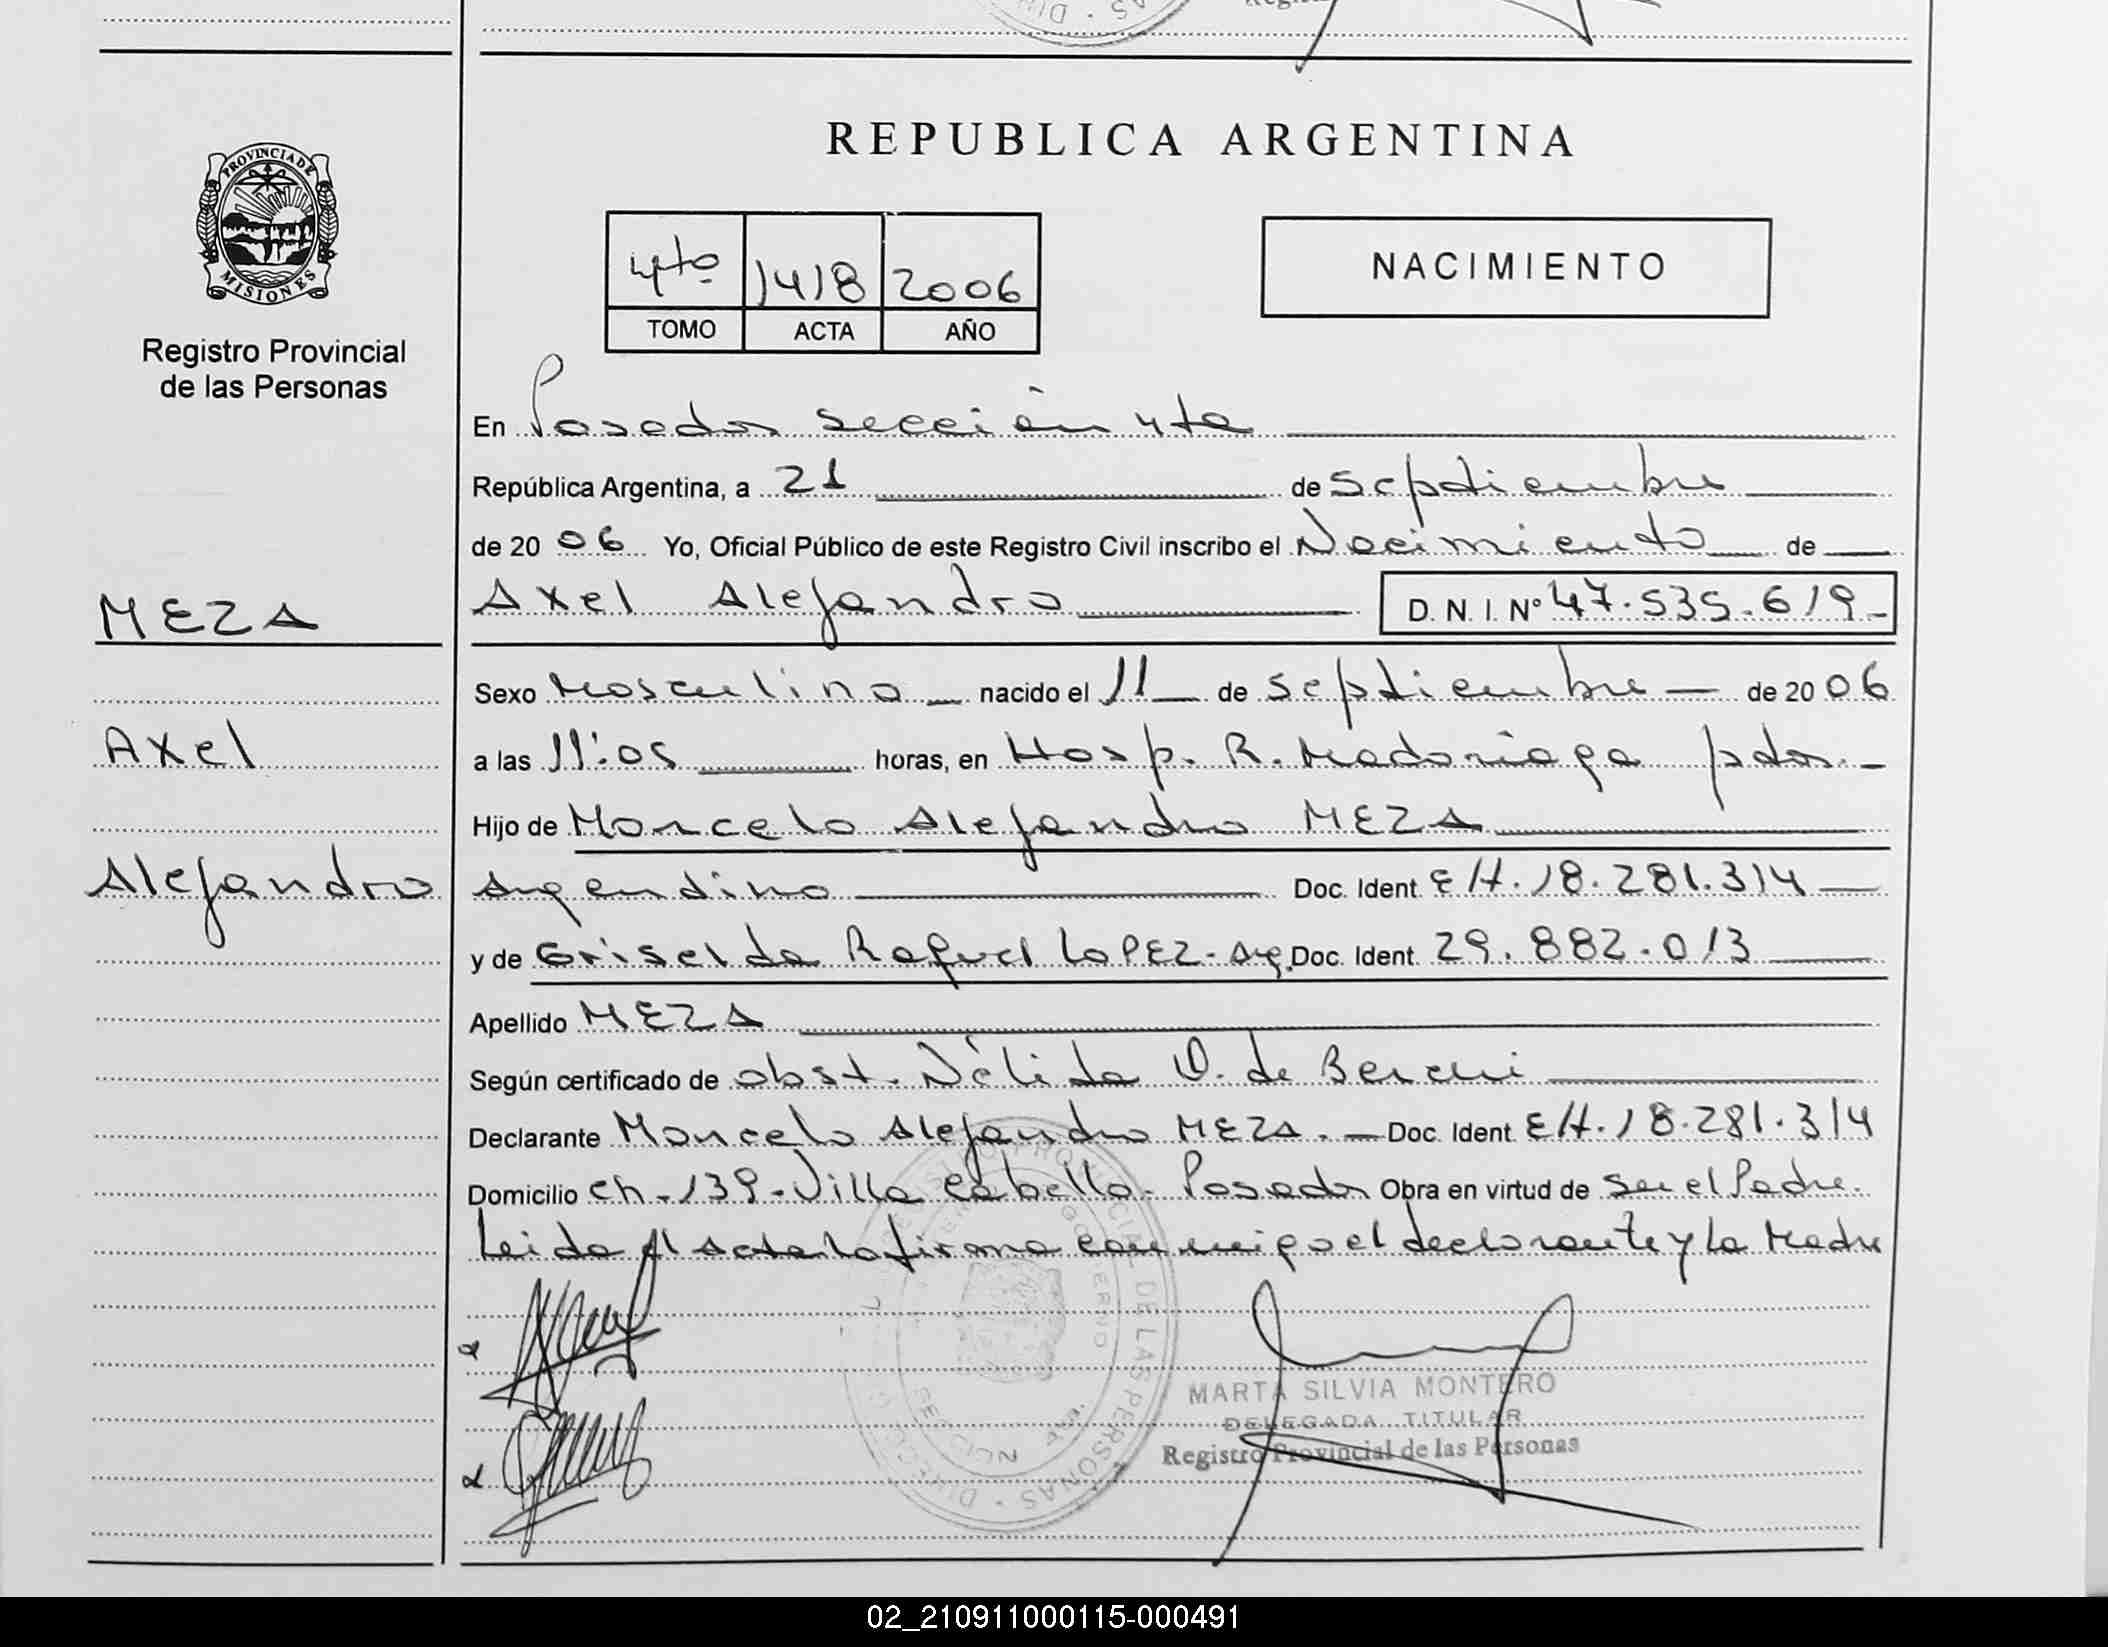 PROVINCIA DE
MISIONES
Registro Provincial
de las Personas
MEZA
Axel
Alejandro
REPUBLICA ARGENTINA
4to 1418 2006
TOMO ACTA AÑO
NACIMIENTO
En Posadas sección 4ta
República Argentina, a 21 de septiembre
de 20 06 Yo, Oficial Público de este Registro Civil inscribo el Nacimiento de
Axel Alejandro D. N. I. Nº 47.535.619-
Sexo Masculino nacido el 11 de septiembre de 20 06
a las 11:05 horas, en Hosp. R. Madariaga pdas.
Hijo de Marcelo Alejandro MEZA
Argentino Doc. Ident. EH. 18.281.314
y de Griselda Raquel LOPEZ - Arg. Doc. Ident. 29.882.013
Apellido MEZA
Según certificado de obst. Nélida O. de
Declarante Marcelo Alejandro MEZA. Doc. Ident. EH. 18.281.314
Domicilio Ch. 139 - Villa Cabello - Posadas Obra en virtud de ser el Padre.
Leida el acta la firma conmigo el declarante y la Madre
REGISTRO PROVINCIAL DE LAS PERSONAS
MARTA SILVIA MONTERO
DELEGADA TITULAR
Registro Provincial de las Personas
02_210911000115-000491